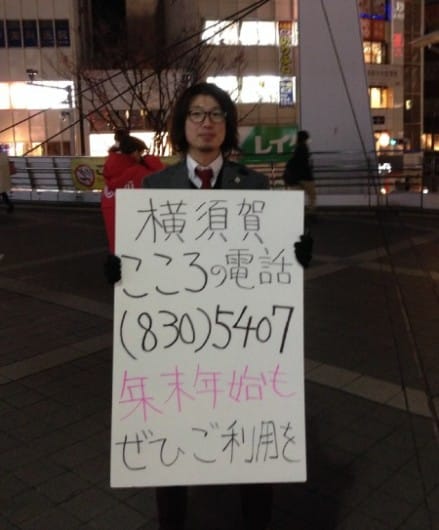 横須賀
こころの電話
(830)5407
年末年始も
ぜひご利用を
レイク